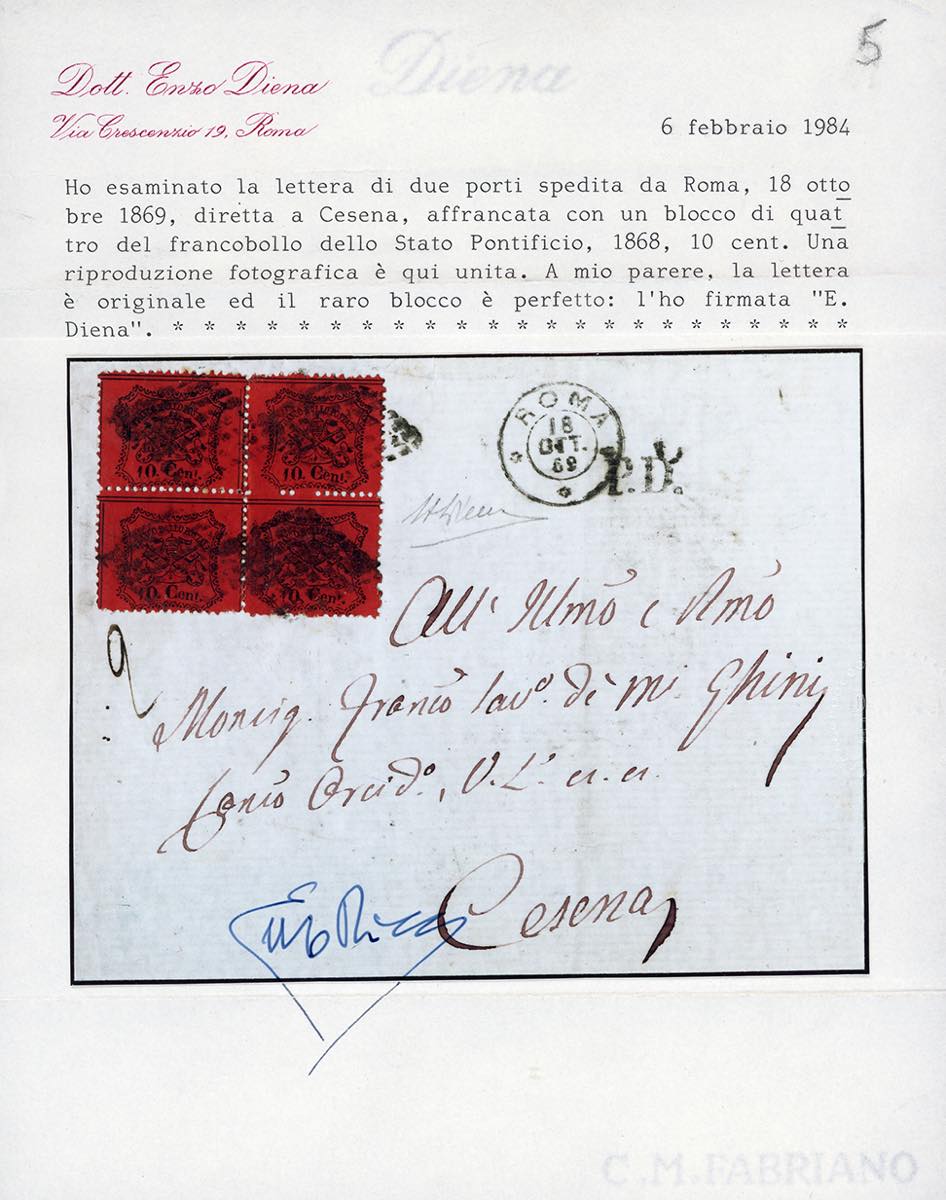 5
Diena
Dott. Enzo Diena
Via Crescenzio 19, Roma
6 febbraio 1984
Ho esaminato la lettera di due porti spedita da Roma, 18 otto
bre 1869, diretta a Cesena, affrancata con un blocco di quat
tro del francobollo dello Stato Pontificio, 1868, 10 cent. Una
riproduzione fotografica è qui unita. A mio parere, la lettera
è originale ed il raro blocco è perfetto: l'ho firmata "E.
Diena". * * * * * * * * * * * * * * * * * * * * * * * *
10. Cent. 10. Cent.
10. Cent. 10. Cent.
ROMA
18
OTT.
69
P.D.
2
All' Illmõ e Rmõ
Monsig. Francõ Sav.º de Mi. Ghini
Cesena
C.M.FABRIANO